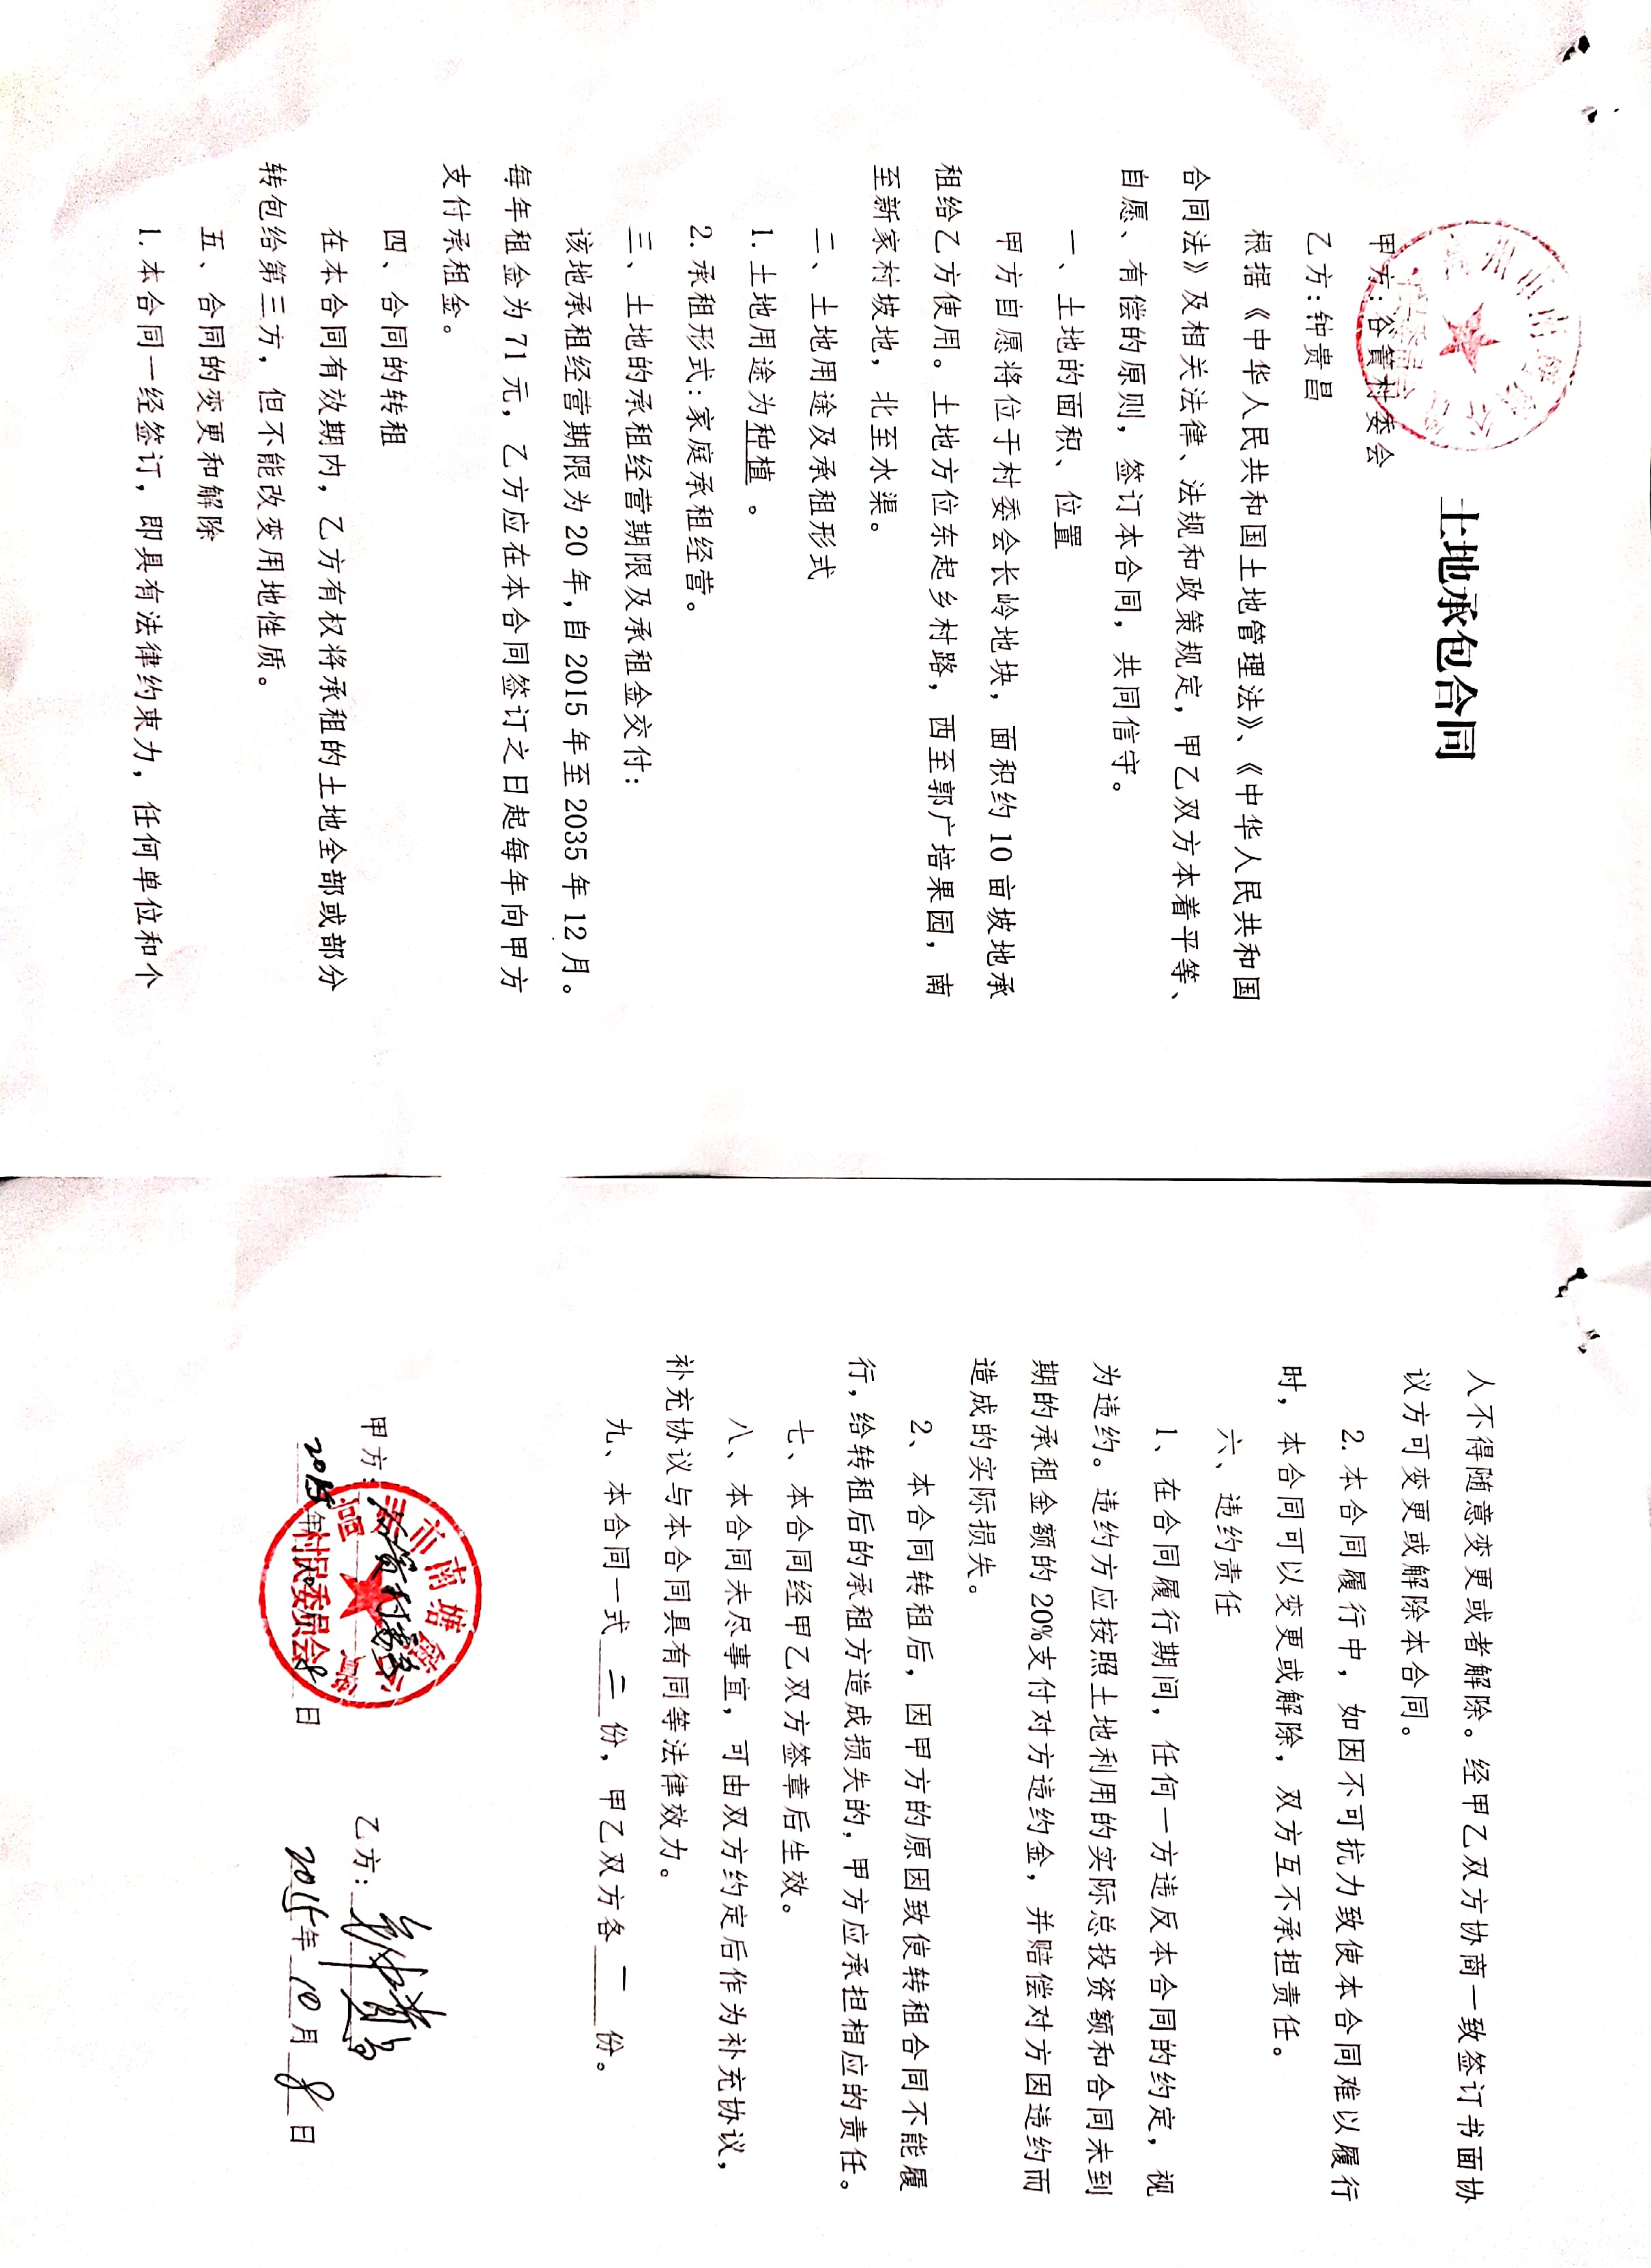 土地承包合同
甲方:谷贡村委会
乙方:钟贵昌
根据《中华人民共和国土地管理法》、《中华人民共和国
合同法》及相关法律、法规和政策规定，甲乙双方本着平等、
自愿、有偿的原则，签订本合同，共同信守。
一、土地的面积、位置
甲方自愿将位于村委会长岭地块，面积约10亩坡地承
租给乙方使用。土地方位东起乡村路，西至郭广培果园，南
至新家村坡地，北至水渠。
二、土地用途及承租形式
1.土地用途为种植。
2.承租形式:家庭承租经营。
三、土地的承租经营期限及承租金交付:
该地承租经营期限为20年,自2015年至2035年12月。
每年租金为71元，乙方应在本合同签订之日起每年向甲方
支付承租金。
四、合同的转租
在本合同有效期内，乙方有权将承租的土地全部或部分
转包给第三方，但不能改变用地性质。
五、合同的变更和解除
1.本合同一经签订，即具有法律约束力，任何单位和个
人不得随意变更或者解除。经甲乙双方协商一致签订书面协
议方可变更或解除本合同。
2.本合同履行中，如因不可抗力致使本合同难以履行
时，本合同可以变更或解除，双方互不承担责任。
六、违约责任
1、在合同履行期间，任何一方违反本合同的约定，视
为违约。违约方应按照土地利用的实际总投资额和合同未到
期的承租金额的20%支付对方违约金，并赔偿对方因违约而
造成的实际损失。
2、本合同转租后，因甲方的原因致使转租合同不能履
行，给转租后的承租方造成损失的，甲方应承担相应的责任。
七、本合同经甲乙双方签章后生效。
八、本合同未尽事宜，可由双方约定后作为补充协议，
补充协议与本合同具有同等法律效力。
九、本合同一式二份，甲乙双方各一份。
甲方:
市南塘镇
村民委员会
2015年 8日
乙方:钟贵昌
2015年10月8日